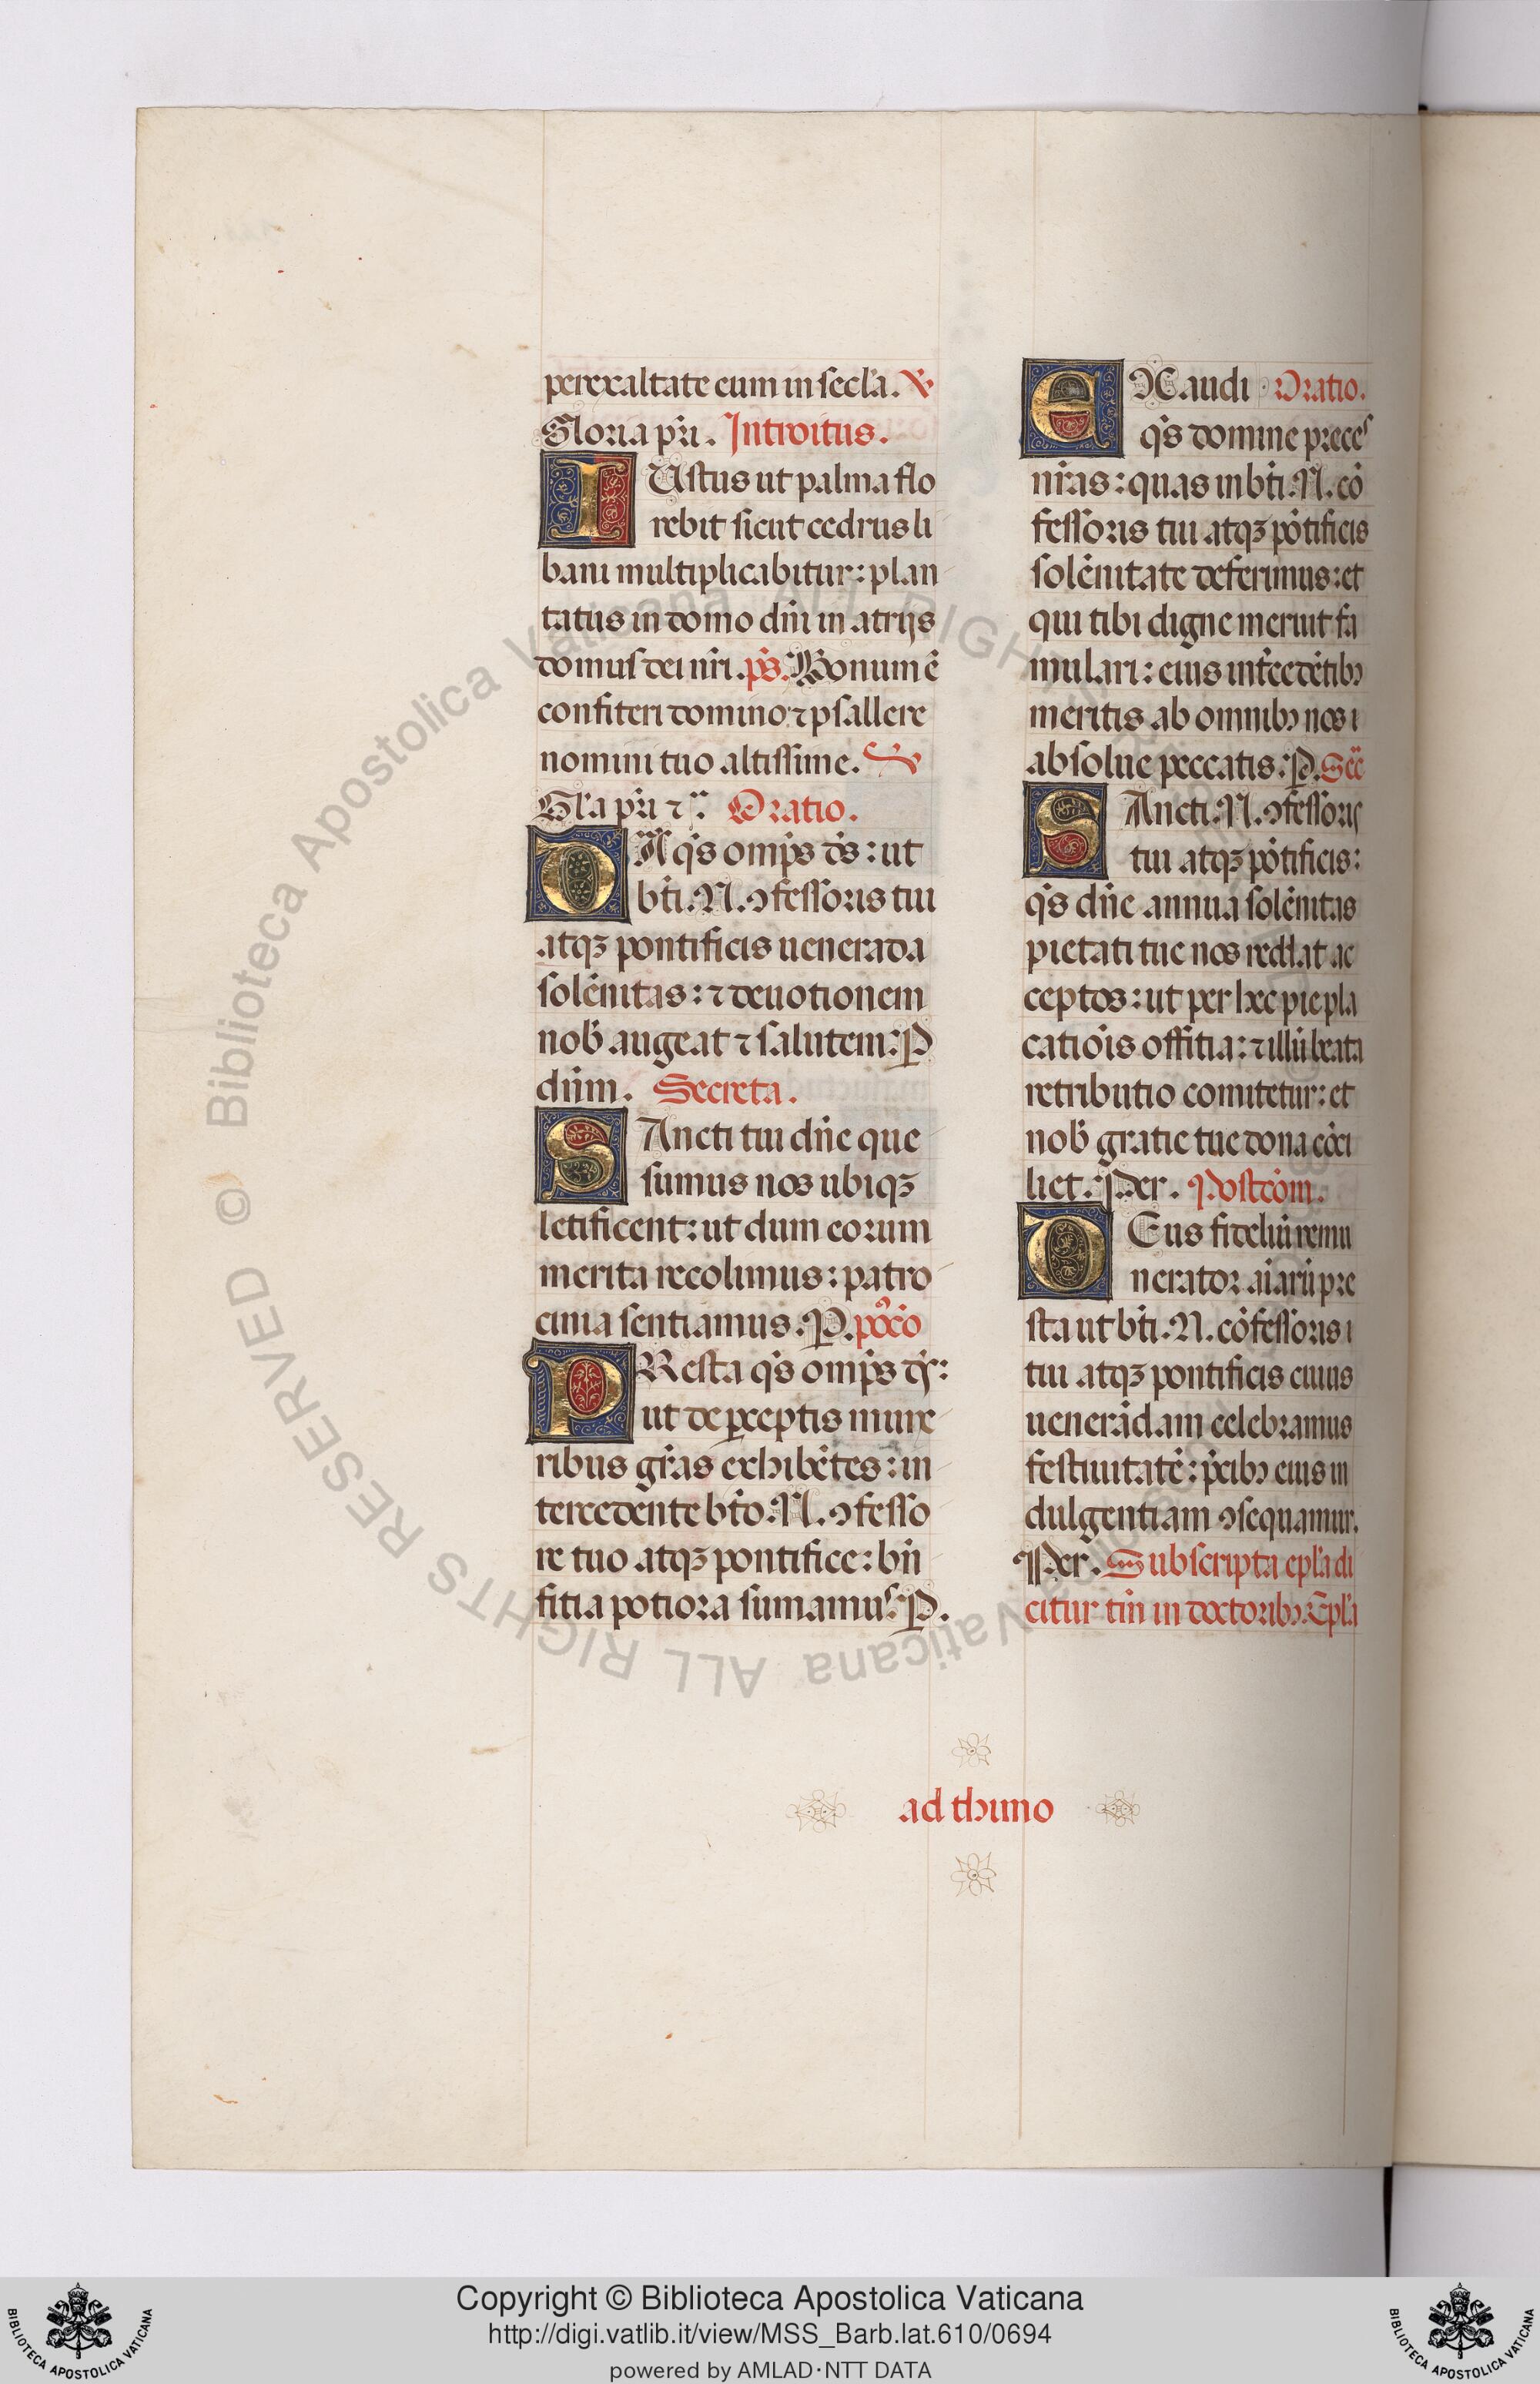 perexaltate eum in secl'a. ℣
Gloria pr̄i. Introitus.
IUstus ut palma flo
rebit sicut cedrus li
bani multiplicabitur: plan
tatus in domo dn̄i in atrijs
domus dei nr̄i. ps̄. Bonum ē
confiteri domino ⁊ psallere
nomini tuo altissime. ℣
Gl'a pr̄i ⁊ c̄. Oratio.
DA qs̄ omps̄ ds̄: ut
bt̄i. N. ꝯfessoris tui
atqꝫ pontificis ueneranda
solēnitas: ⁊ deuotionem
nob̄ augeat ⁊ salutem: P
dn̄m. Secreta.
SAncti tui dn̄e que
sumus nos ubiqꝫ
letificent: ut dum eorum
merita recolimus: patro
cinia sentiamus. P. poꝰcō
PResta qs̄ omps̄ ds̄:
ut de ꝑceptis mune
ribus gr̄as exhibētes: in
tercedente bt̄o. N. ꝯfesso
re tuo atqꝫ pontifice: bn̄
fitia potiora sumamus. P.
EXaudi Oratio.
qs̄ domine preces
nr̄as: quas in bt̄i. N. cō
fessoris tui atqꝫ pōtificis
solēnitate deferimus: et
qui tibi digne meruit fa
mulari: eius int̄cedētibꝰ
meritis ab omnibꝰ nos
absolue peccatis: P. Sec̄
SAncti. N. ꝯfessoris
tui atqꝫ pōtificis:
qs̄ dn̄e annua solēnitas
pietati tue nos reddat ac
ceptos: ut per hec pie pla
catiōis offitia: ⁊ illū beata
retributio comitetur: et
nob̄ gratie tue dona cōci
liet. Per. Postcōm.
DEus fideliū remu
nerator aīarū pre
sta ut bt̄i. N. cōfessoris
tui atqꝫ pontificis cuius
uenerādam celebramus
festiuitatē: p̄cibꝰ eius in
dulgentiam ꝯsequamur.
Per. Subscripta epl'a di
citur tm̄ in doctoribꝰ. Epl'a
ad thimo
© Biblioteca Apostolica Vaticana ALL RIGHTS RESERVED
Copyright © Biblioteca Apostolica Vaticana
http://digi.vatlib.it/view/MSS_Barb.lat.610/0694
powered by AMLAD·NTT DATA
BIBLIOTECA APOSTOLICA VATICANA
BIBLIOTECA APOSTOLICA VATICANA